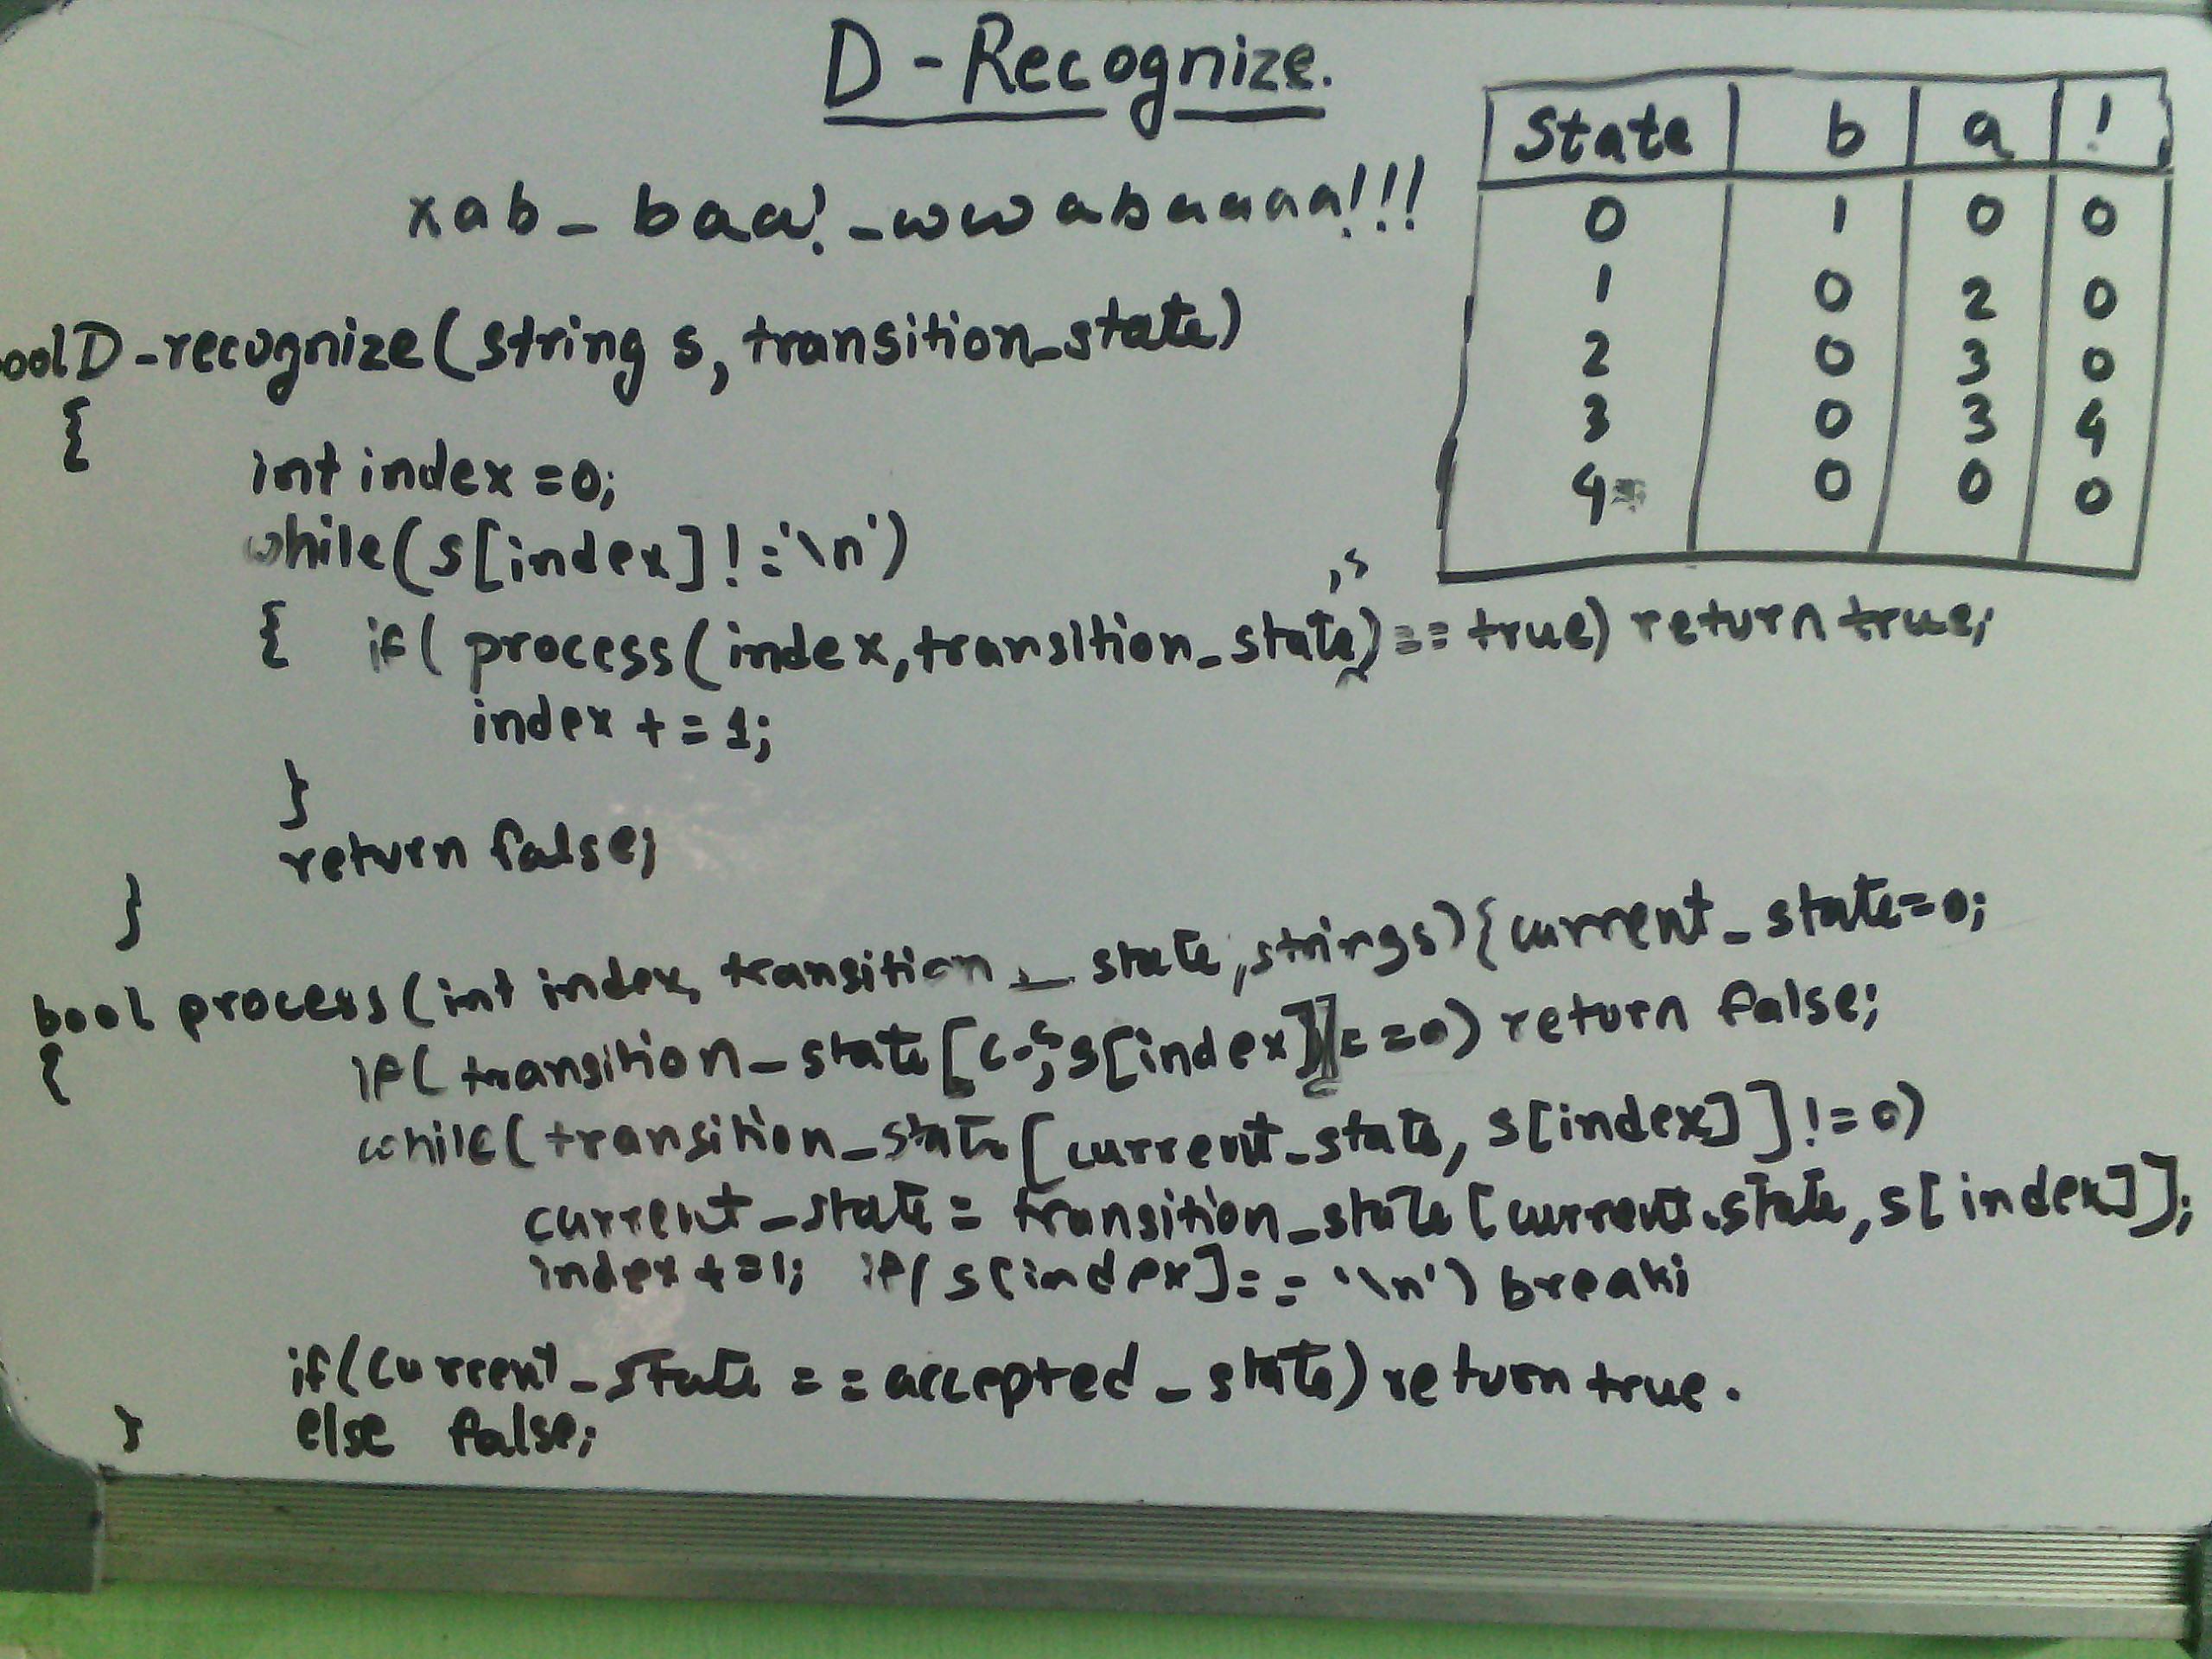 D-Recognize.
xab_baa!_wwabaaaa!!!
State b a !
0 1 0 0
1 0 2 0
2 0 3 0
3 0 3 4
4 0 0 0
oolD-recognize(string s, transition_state)
{
int index =0;
while(s[index]!='\n')
,s
{ if( process(index,transition_state)==true) return true;
index +=1;
}
return false;
}
bool process(int index, transition_state,strings){current_state=0;
{ if( transition_state[c-s,s[index]]==0) return false;
while(transition_state[current_state, s[index]]!=0)
current_state = transition_state[current_state,s[index]];
index+=1; if(s[index]=='\n') break;
if(current_state ==accepted_state) return true.
} else false;